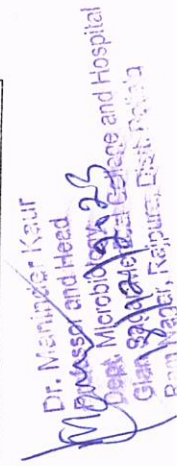 Dr. Maninder Kaur
Professor and Head
Dept. Microbiology
Gian Sagar Medical College and Hospital
Ram Nagar, Rajpura, Distt. Patiala